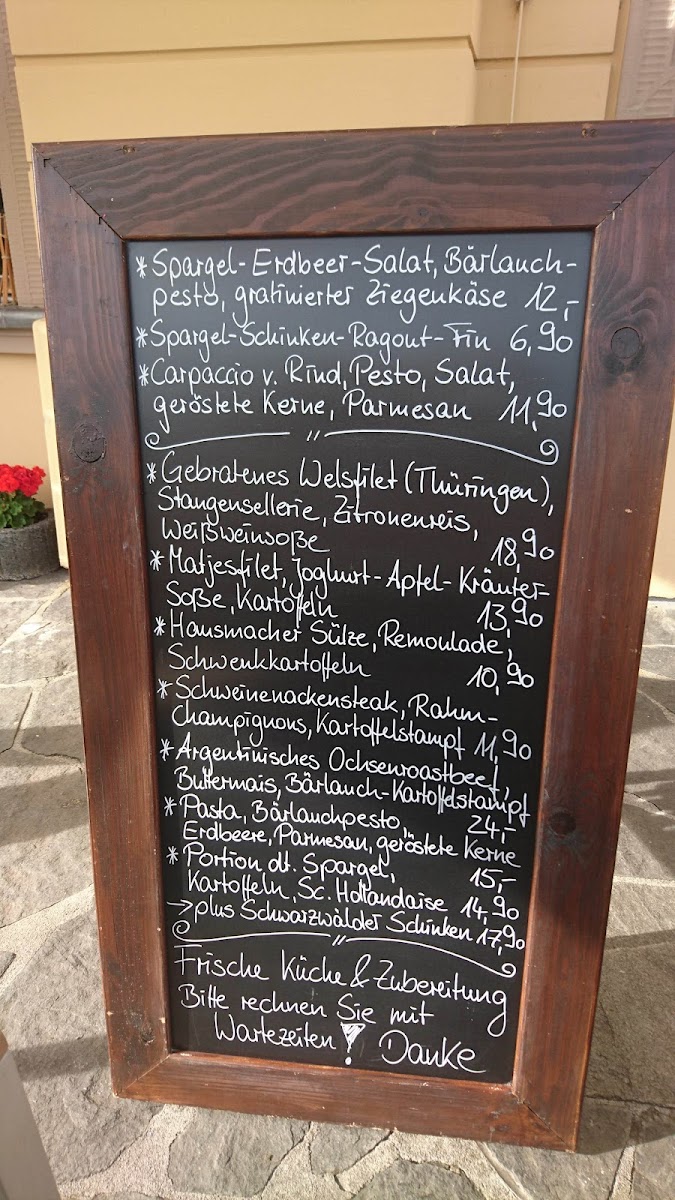 * Spargel-Erdbeer-Salat, Bärlauch-
pesto, gratinierter Ziegenkäse 12,-
* Spargel-Schinken-Ragout-Fin 6,90
* Carpaccio v. Rind, Pesto, Salat,
geröstete Kerne, Parmesan 11,90
* Gebratenes Welsfilet (Thüringen),
Stangensellerie, Zitronenreis,
Weißweinsoße 18,90
* Matjesfilet, Joghurt-Apfel-Kräuter-
Soße, Kartoffeln 13,90
* Hausmacher Sülze, Remoulade,
Schwenkkartoffeln 10,90
* Schweinenackensteak, Rahm-
Champignons, Kartoffelstampf 11,90
* Argentinisches Ochsenroastbeef,
Buttermais, Bärlauch-Kartoffelstampf
24,-
* Pasta, Bärlauchpesto,
Erdbeere, Parmesan, geröstete Kerne
15,-
* Portion dt. Spargel,
Kartoffeln, Sc. Hollandaise 14,90
→ plus Schwarzwälder Schinken 17,90
Frische Küche & Zubereitung
Bitte rechnen Sie mit
Wartezeiten! Danke